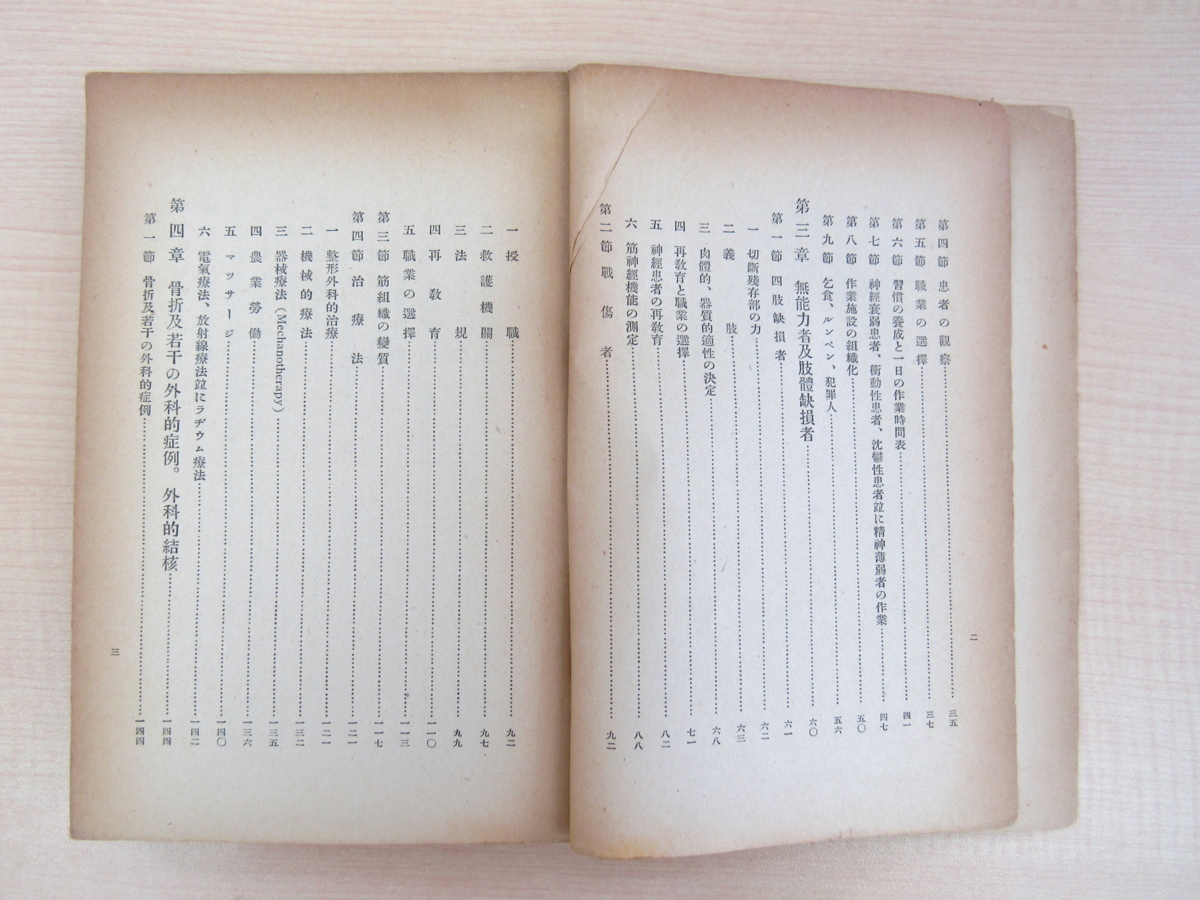 第四節 患者の觀察 三五
第五節 職業の選擇 三七
第六節 習慣の養成と一日の作業時間表 四一
第七節 神經衰弱患者、衝動性患者、沈鬱性患者竝に精神薄弱者の作業 四七
第八節 作業施設の組織化 五〇
第九節 乞食、ルンペン、犯罪人 五六
第三章 無能力者及肢體缺損者 六〇
第一節 四肢缺損者 六一
一 切斷殘存部の力 六二
二 義肢 六三
三 肉體的、器質的適性の決定 六八
四 再敎育と職業の選擇 七一
五 神經患者の再敎育 八二
六 筋神經機能の測定 八八
第二節 戰傷者 九二
二
一 授職 九二
二 救護機關 九七
三 法規 九九
四 再敎育 一一〇
五 職業の選擇 一一三
第三節 筋組織の變質 一一七
第四節 治療法 一二一
一 整形外科的治療 一二一
二 機械的療法 一三二
三 器械療法(Mechanotherapy) 一三五
四 農業勞働 一三六
五 マッサージ 一四〇
六 電氣療法、放射線療法竝にラヂウム療法 一四二
第四章 骨折及若干の外科的症例。外科的結核 一四四
第一節 骨折及若干の外科的症例 一四四
三